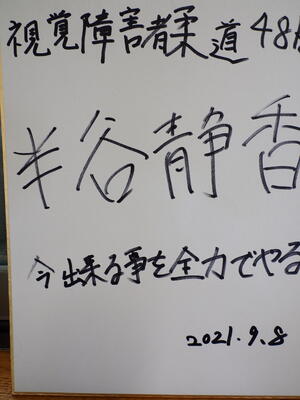 視覚障害者柔道48
半谷静香
今出来る事を全力でやる
2021.9.8